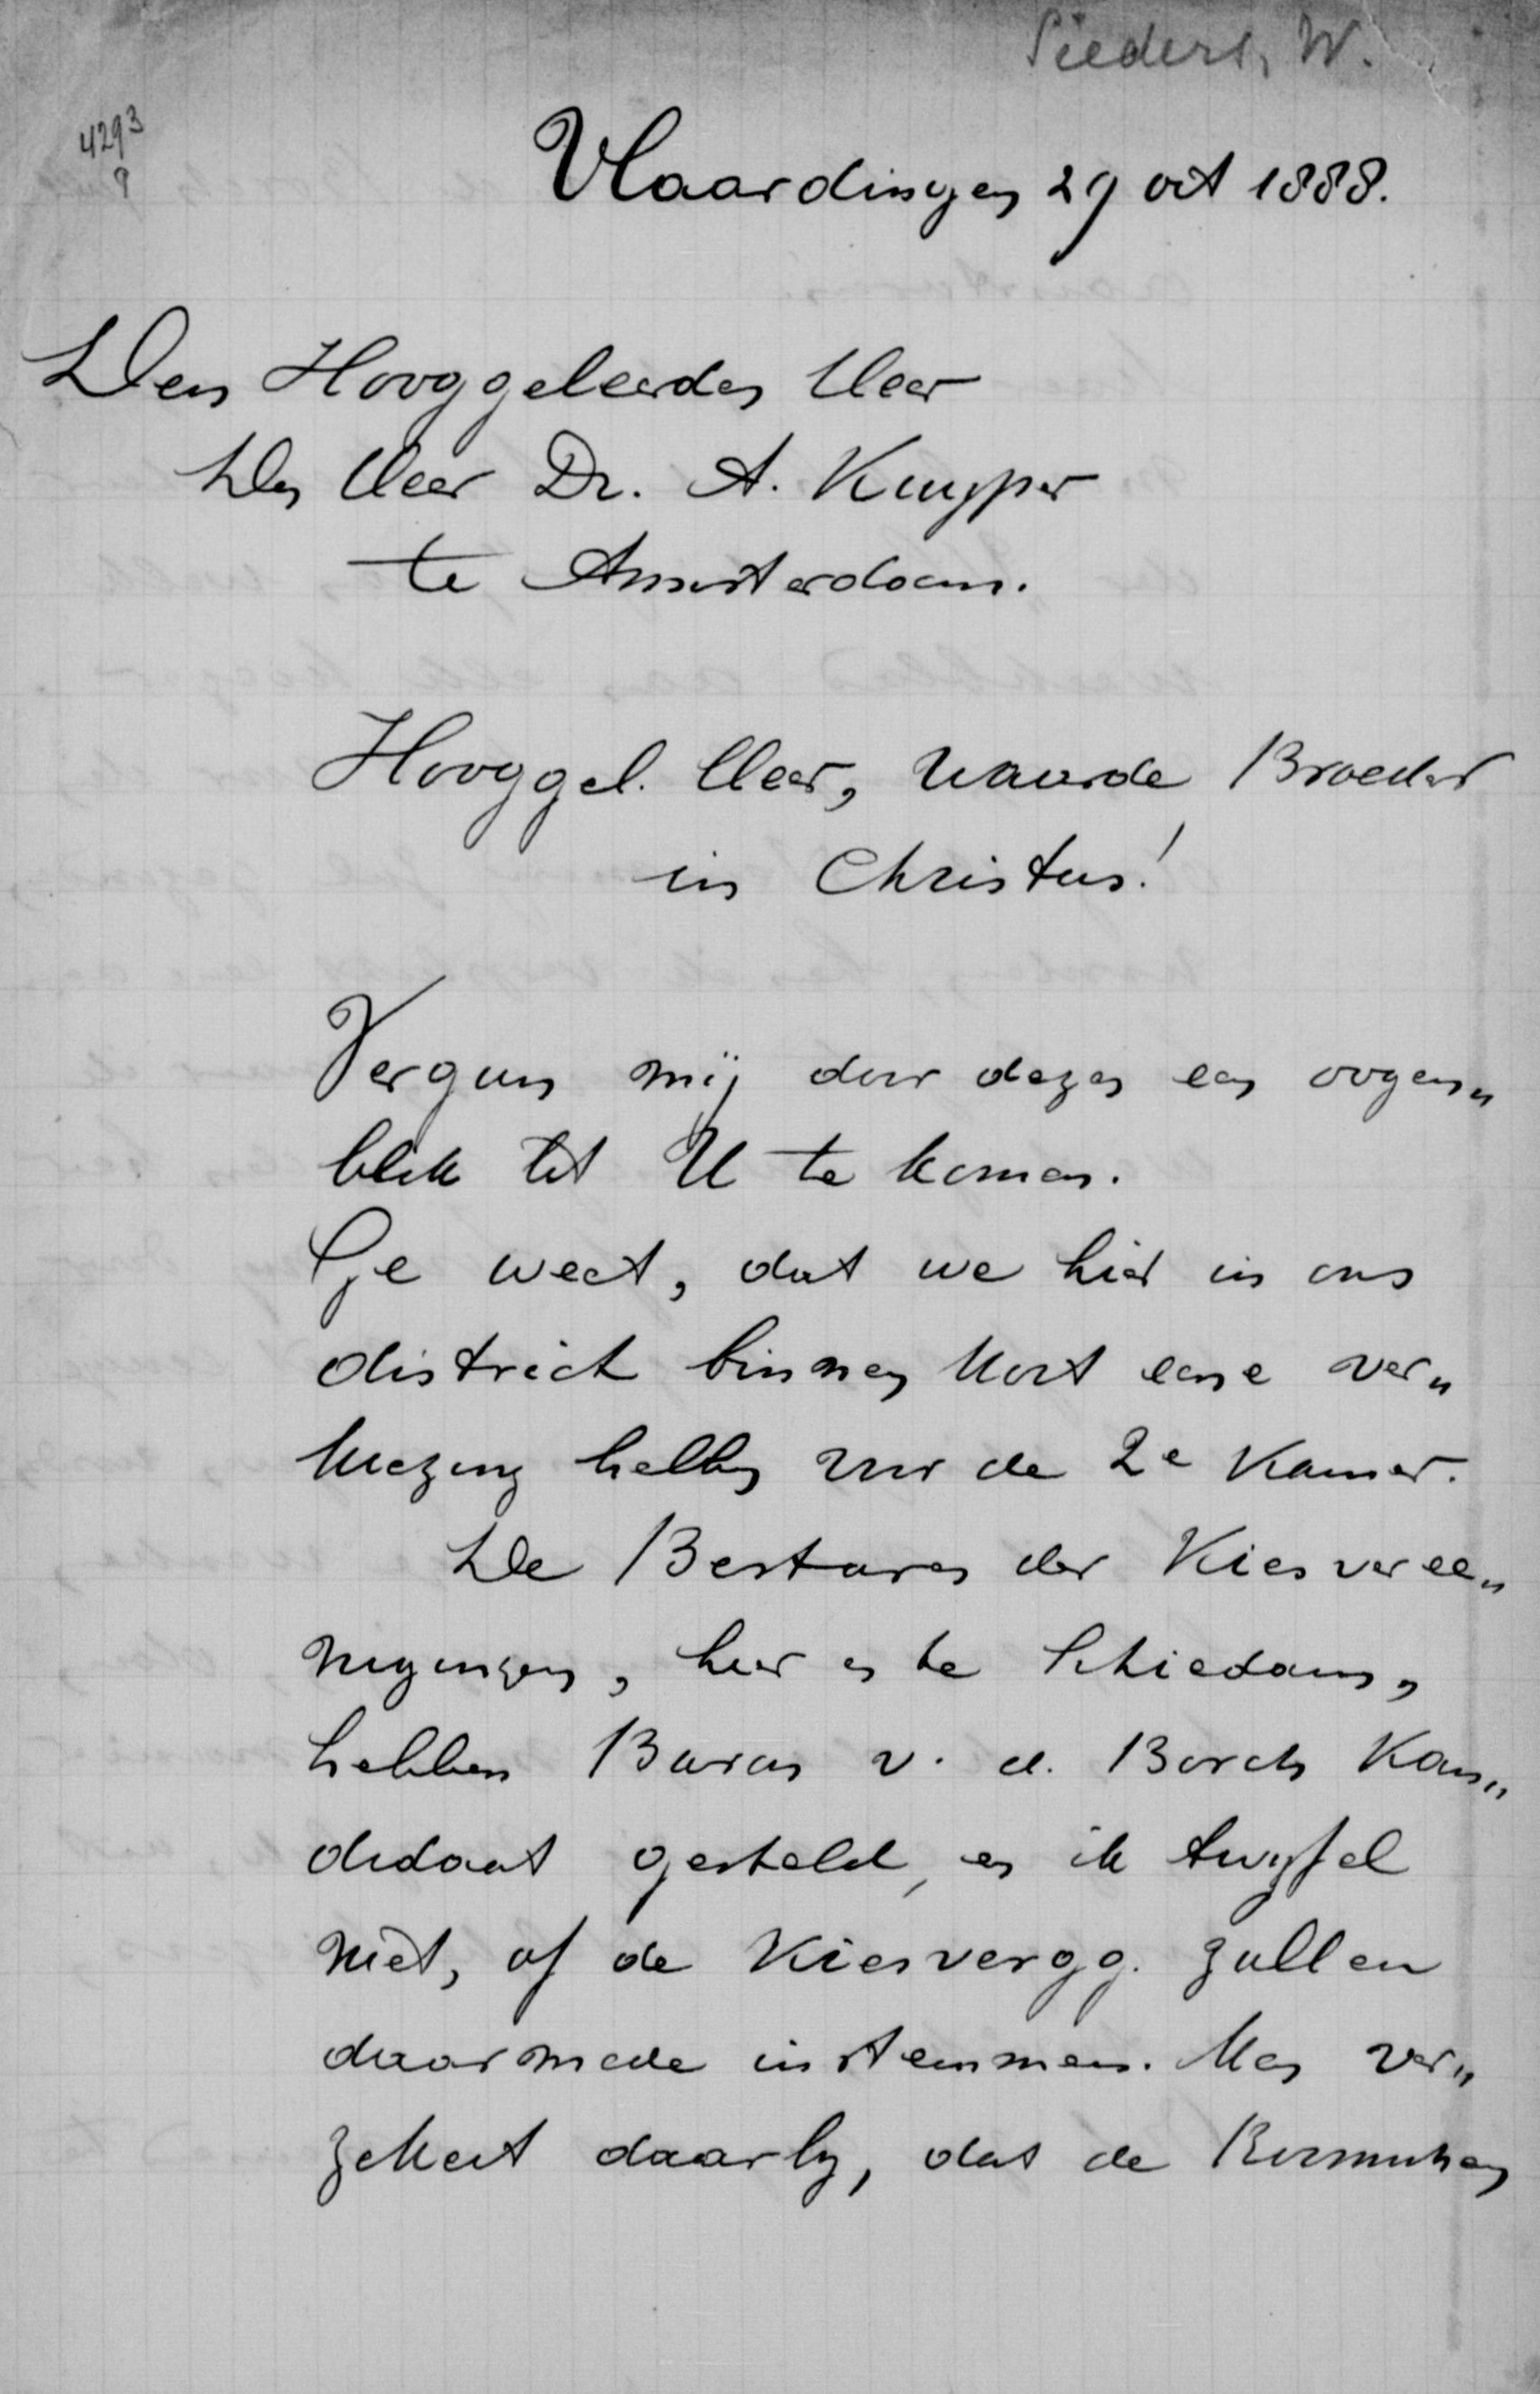 Sieders, W.
4293
9
Vlaardingen 29 oct 1888.
Den Hooggeleerden Heer
Den Heer Dr. A. Kuyper
te Amsterdam.
Hooggel. Heer, waarde Broeder
in Christus!
Vergun mij door dezen een oogen„
blik tot U te komen.
Ge weet, dat we hier in ons
district binnen kort eene ver„
kiezing hebben voor de 2e Kamer.
De Besturen der Kiesveree„
nigingen, hier en te Schiedam,
hebben Baron v. d. Borch Kan„
didaat gesteld, en ik twijfel
niet, of de Kiesvergg. zullen
daarmede instemmen. Men ver„
zekert daarbij, dat de Roomschen